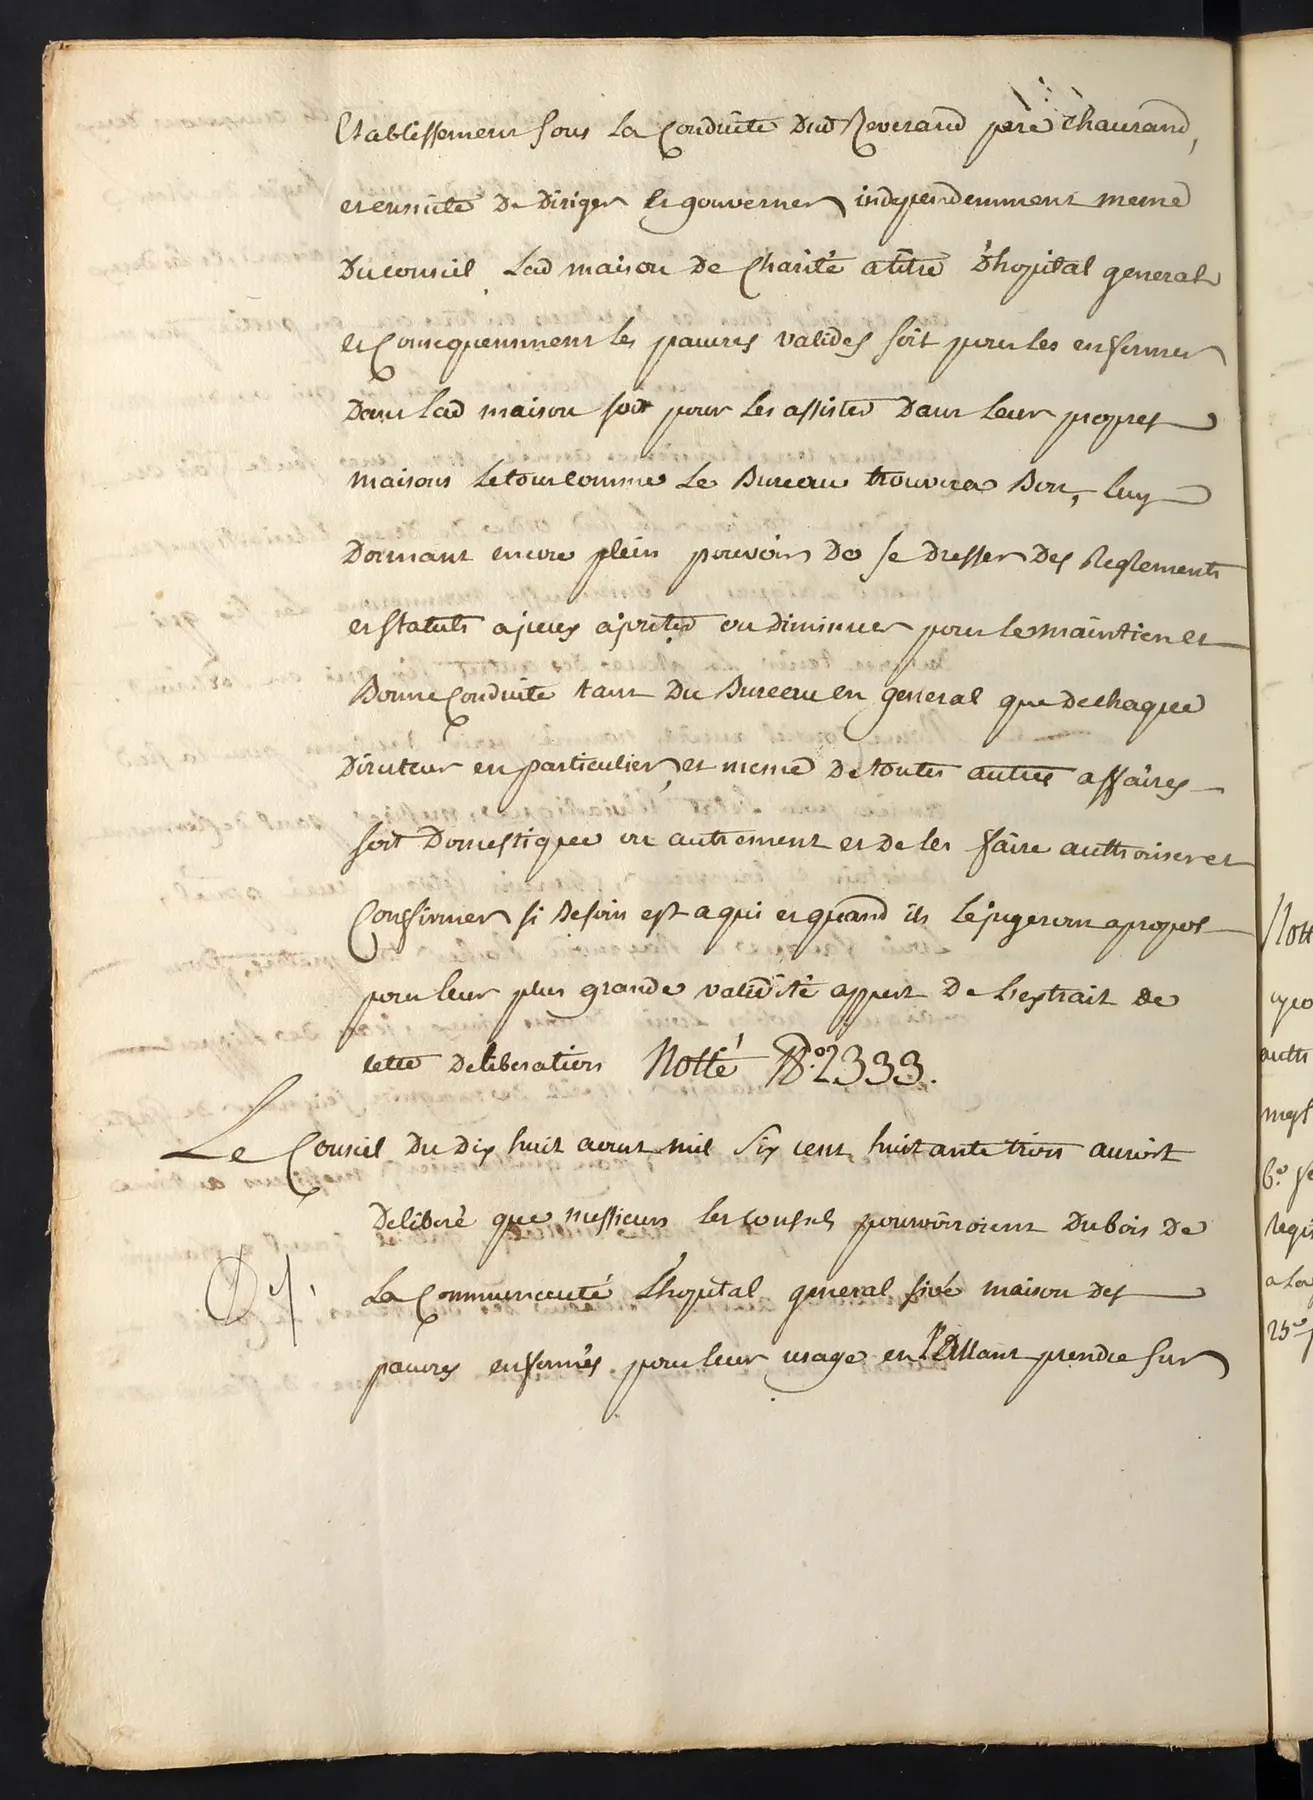 Etablissement sous la Conduite Dud Reverand pere chaurand,
et ensuite De Diriger et gouverner independemment meme
Du conseil Lad maison De Charité a titre D'hopital general
et Consequemment les pauvres valides soit pour les enfermer
Dans Lad maison soit pour les assister Dans leur propres
maisons Le tout comme Le Bureau trouvera Bon, luy
Donnant encore plein pouvoir De se Dresser Des Reglements
et statuts ajouter ou Diminuer pour le maintien et
Bonne Conduite tant Du Bureau en general que De chaque
Directeur en particulier, et meme De toutes autres affaires
soit Domestique ou autrement et De les faire authoriser et
Confirmer si Besoin est a qui et quand ils le jugeront a propos
pour leur plus grande validité appert De L'extrait De
cette Deliberation Notté N.º 2333.
Le Conseil Du Dix huit aoust mil six cent huitante trois auroit
Deliberé que messieurs les consuls pourvoiroient Du bois De
La Communauté L'hopital general sivé maison Des
pauvres enfermés pour leur usage en l'allant prendre sur
Nott
auth
Regi
25º